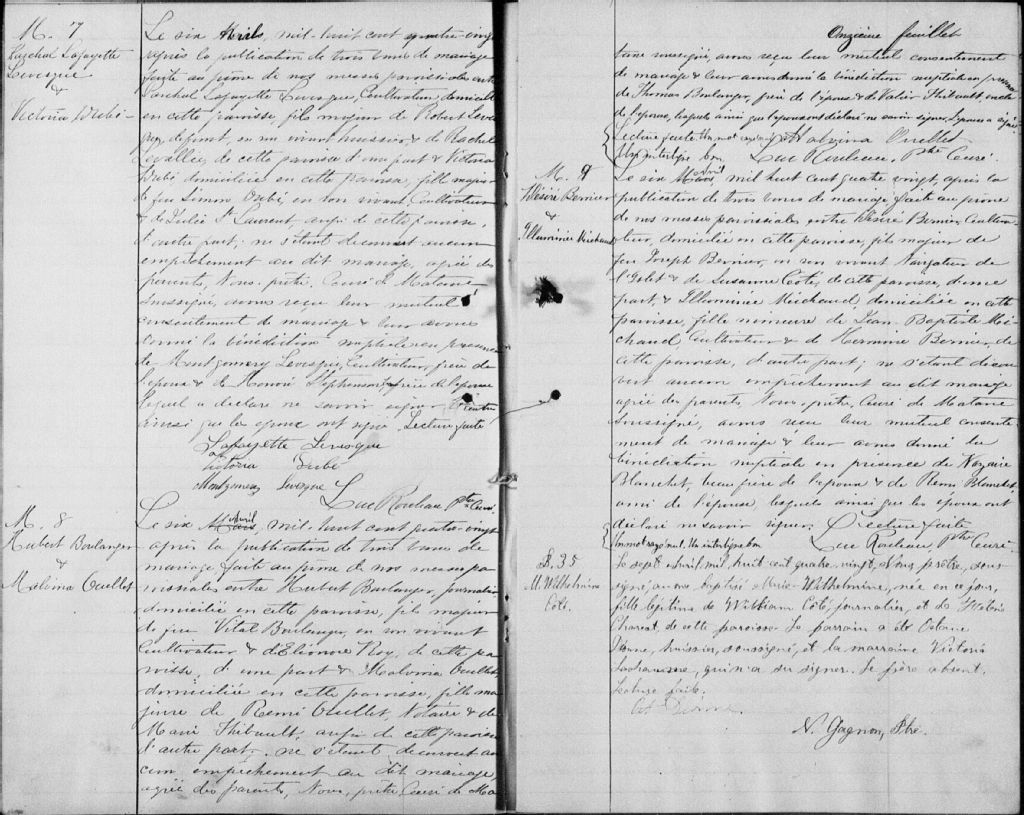 M. 7
Paschal Lafayette
Levesque
&
Victoria Dubé
Le six Avril, mil-huit cent quatre-vingt
après la publication de trois bans de mariage
faite au prône de nos messes paroissiales entre
Paschal Lafayette Levesque, Cultivateur, domicilié
en cette paroisse, fils majeur de Robert Leves
que, défunt, en son vivant huissier & de Rachel
Levallée, de cette paroisse d'une part & Victoria
Dubé domiciliée en cette paroisse, fille majeure
de feu Simon Dubé, en son vivant, Cultivateur
& de Julie St Laurent, aussi de cette paroisse,
d'autre part; ne s'étant découvert aucun
empêchement au dit mariage, agrée des
parents, Nous, prêtre, Curé de Matane
soussigné, avons reçu leur mutuel
consentement de mariage & leur avons
donné la bénédiction nuptiale en présence
de Montgomery Levesque, Cultivateur, frère de
l'époux & de Honoré Stephenson, frère de l'épouse
lequel a déclaré ne savoir signer,
ainsi que les époux ont signé. Lecture faite
Lafayette Levesque
Victoria Dubé
Montgomery Levesque
Luc Rouleau Ptre Curé
M. 8
Hubert Boulanger
&
Malvina Ouellet
Le six Mars Avril, mil-huit cent quatre-vingt
après la publication de trois bans de
mariage faite au prône de nos messes pa
roissiales entre Hubert Boulanger, journalier
domicilié en cette paroisse, fils majeur
de feu Vital Boulanger, en son vivant
Cultivateur & d'Eléonore Roy, de cette pa
roisse, d'une part & Malvina Ouellet,
domiciliée en cette paroisse, fille ma
jeure de Remi Ouellet, Notaire & de
Marie Thibault, aussi de cette paroisse
d'autre part; ne s'étant découvert au
cun empêchement au dit mariage,
agrée des parents, Nous, prêtre Curé de Ma
Onzième feuillet
tane soussigné, avons reçu leur mutuel consentement
de mariage & leur avons donné la bénédiction nuptiale en présence
de Thomas Boulanger, frère de l'époux & de Valier Thibault, oncle
de l'épouse, lesquels ainsi que l'époux ont déclaré ne savoir signer, l'épouse a signé
Lecture faite. Un mot rayé nul Malvina Ouellet
Un interligne bon Luc Rouleau, Ptre Curé.
M. 9
Désiré Bernier
&
Illuminée Michaud
Le six Mars avril, mil huit cent quatre vingt, après la
publication de trois bans de mariage faite au prône
de nos messes paroissiales, entre Désiré Bernier, Cultiva
teur, domicilié en cette paroisse, fils majeur de
feu Joseph Bernier, en son vivant Navigateur de
l'Islet & de Susanne Côté, de cette paroisse, d'une
part, & Illuminée Michaud domiciliée en cette
paroisse, fille mineure de Jean Baptiste Mi-
chaud Cultivateur & de Hermine Bernier, de
cette paroisse, d'autre part; ne s'étant décou
vert aucun empêchement au dit mariage
agrée des parents, Nous, prêtre, Curé de Matane
soussigné, avons reçu leur mutuel consente
ment de mariage & leur avons donné la
bénédiction nuptiale en présence de Nazaire
Blanchet, beau-frère de l'époux & de Remi Blanchet,
ami de l'épouse, lesquels ainsi que les époux ont
déclaré ne savoir signer. Lecture faite
Un mot rayé nul. Un interligne bon Luc Rouleau, Ptre Curé
B. 35
M. Wilhelmine
Côté.
Le sept avril mil huit cent quatre vingt, Nous prêtre, sous-
signé, avons baptisé Marie-Wilhelmine, née en ce jour,
fille légitime de William Côté, journalier, et de
Charest, de cette paroisse. Le parrain a été Octave
Dionne, huissier, soussigné, et la marraine Victoria
Lachausse, qui n'a su signer. Le père absent.
Lecture faite.
Oct Dionne.
N. Gagnon, Ptre.